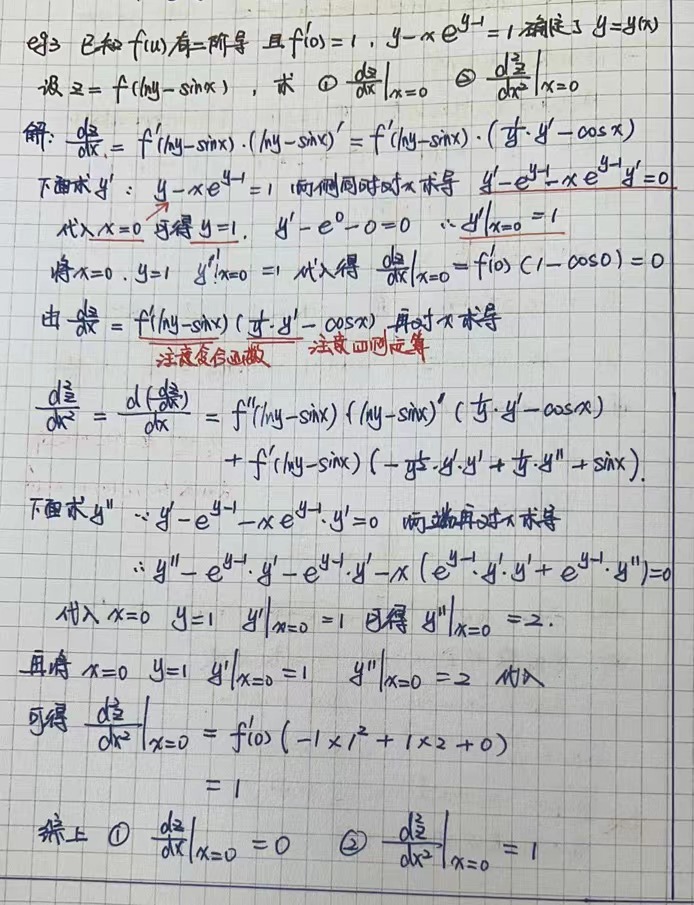 eg3 已知f(u)有二阶导 且f'(0)=1, y-xe^{y-1}=1确定了y=y(x)
设z=f(lny-sinx), 求 ① dz/dx|_{x=0} ② d²z/dx²|_{x=0}
解: dz/dx = f'(lny-sinx)·(lny-sinx)' = f'(lny-sinx)·(1/y·y'-cosx)
下面求y': y-xe^{y-1}=1 两侧同时对x求导 y'-e^{y-1}-xe^{y-1}y'=0
代入x=0 可得y=1. y'-e^0-0=0 ∴y'|_{x=0}=1
将x=0. y=1 y'|_{x=0}=1 代入得 dz/dx|_{x=0}=f'(0)(1-cos0)=0
由dz/dx = f'(lny-sinx)(1/y·y'-cosx) 再对x求导
注意复合函数 注意四则运算
d²z/dx² = d(dz/dx)/dx = f''(lny-sinx)(lny-sinx)'(1/y·y'-cosx)
+f'(lny-sinx)(-1/y²·y'·y'+1/y·y''+sinx).
下面求y'' ∵y'-e^{y-1}-xe^{y-1}·y'=0 两端再对x求导
∴y''-e^{y-1}·y'-e^{y-1}·y'-x(e^{y-1}·y'·y'+e^{y-1}·y'')=0
代入x=0 y=1 y'|_{x=0}=1 可得y''|_{x=0}=2.
再将x=0 y=1 y'|_{x=0}=1 y''|_{x=0}=2 代入
可得 d²z/dx²|_{x=0} = f'(0)(-1×1²+1×2+0)
=1
综上 ① dz/dx|_{x=0}=0 ② d²z/dx²|_{x=0}=1